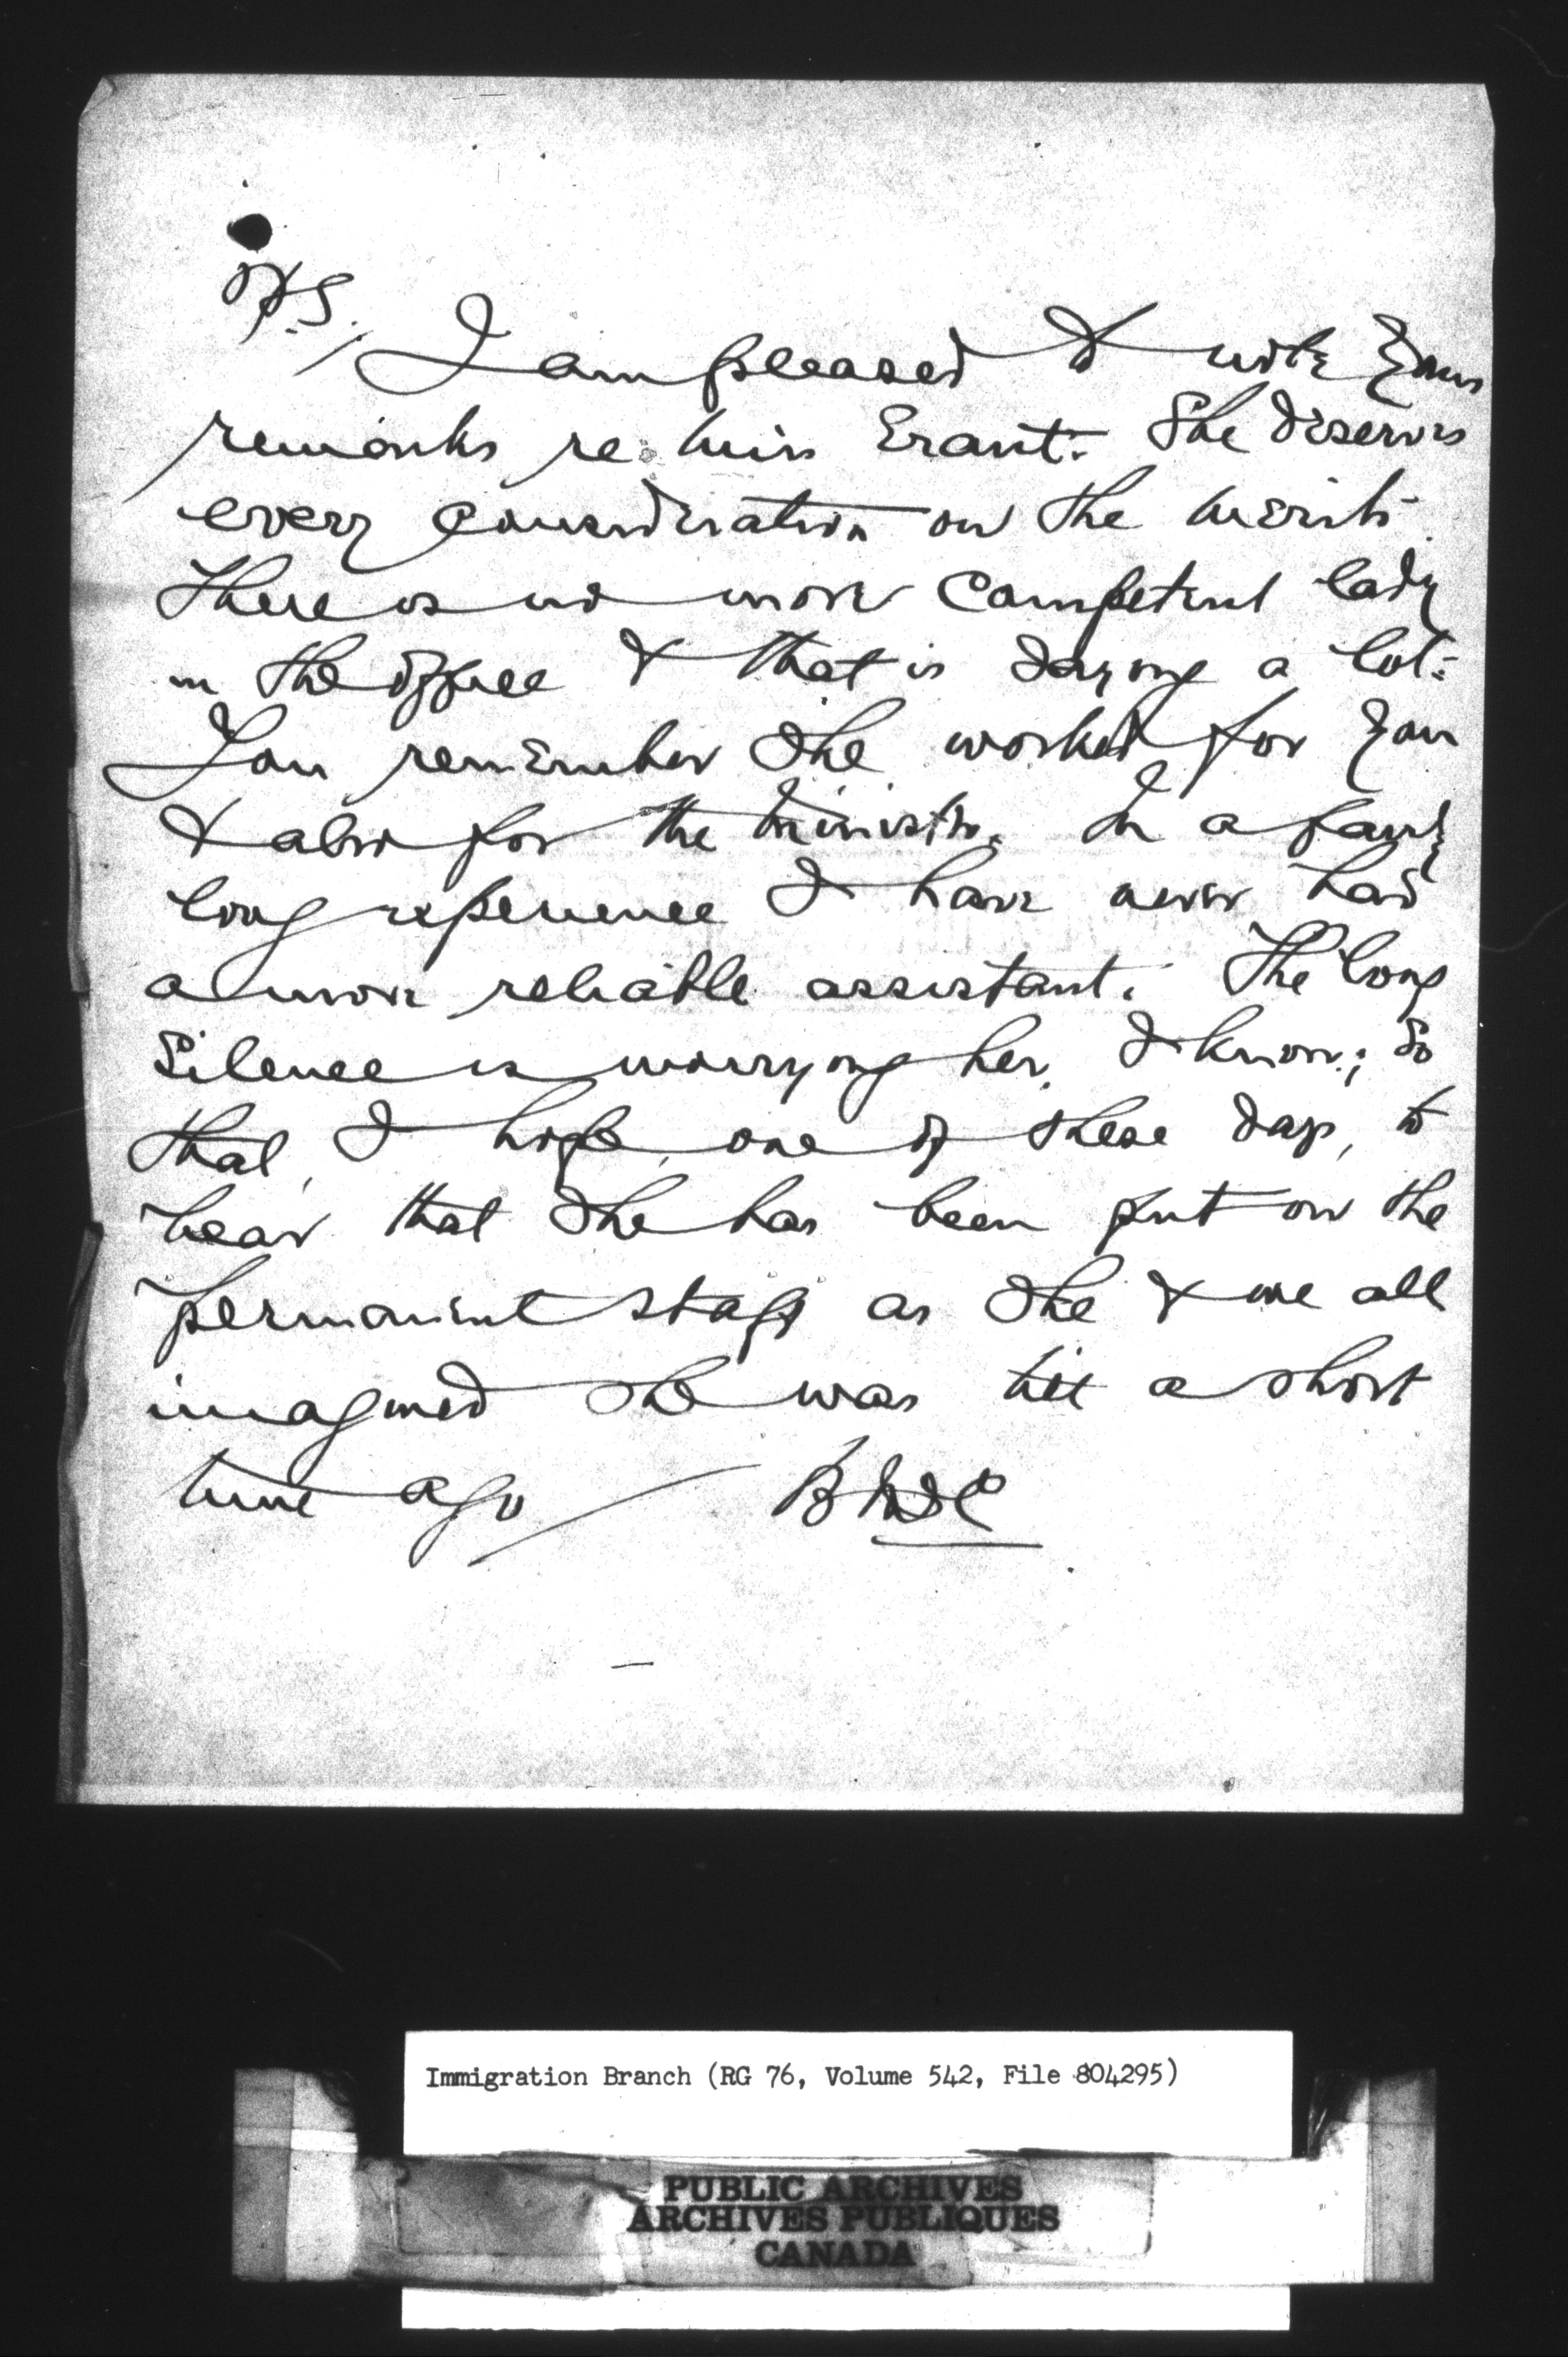 P.S.
I am pleased to note your
remarks re. Miss Grant. She deserves
every consideration on the merits.
There is no more competent lady
in the office & that is saying a lot.
You remember she worked for you
& also for the Minister. In a fairly
long experience I have never had
a more reliable assistant. The long
silence is worrying her, I know; so
that, I hope, one of these days, to
hear that she has been put on the
permanent staff as she & we all
imagined she was till a short
time ago
Immigration Branch (RG 76, Volume 542, File 804295)
PUBLIC ARCHIVES
ARCHIVES PUBLIQUES
CANADA